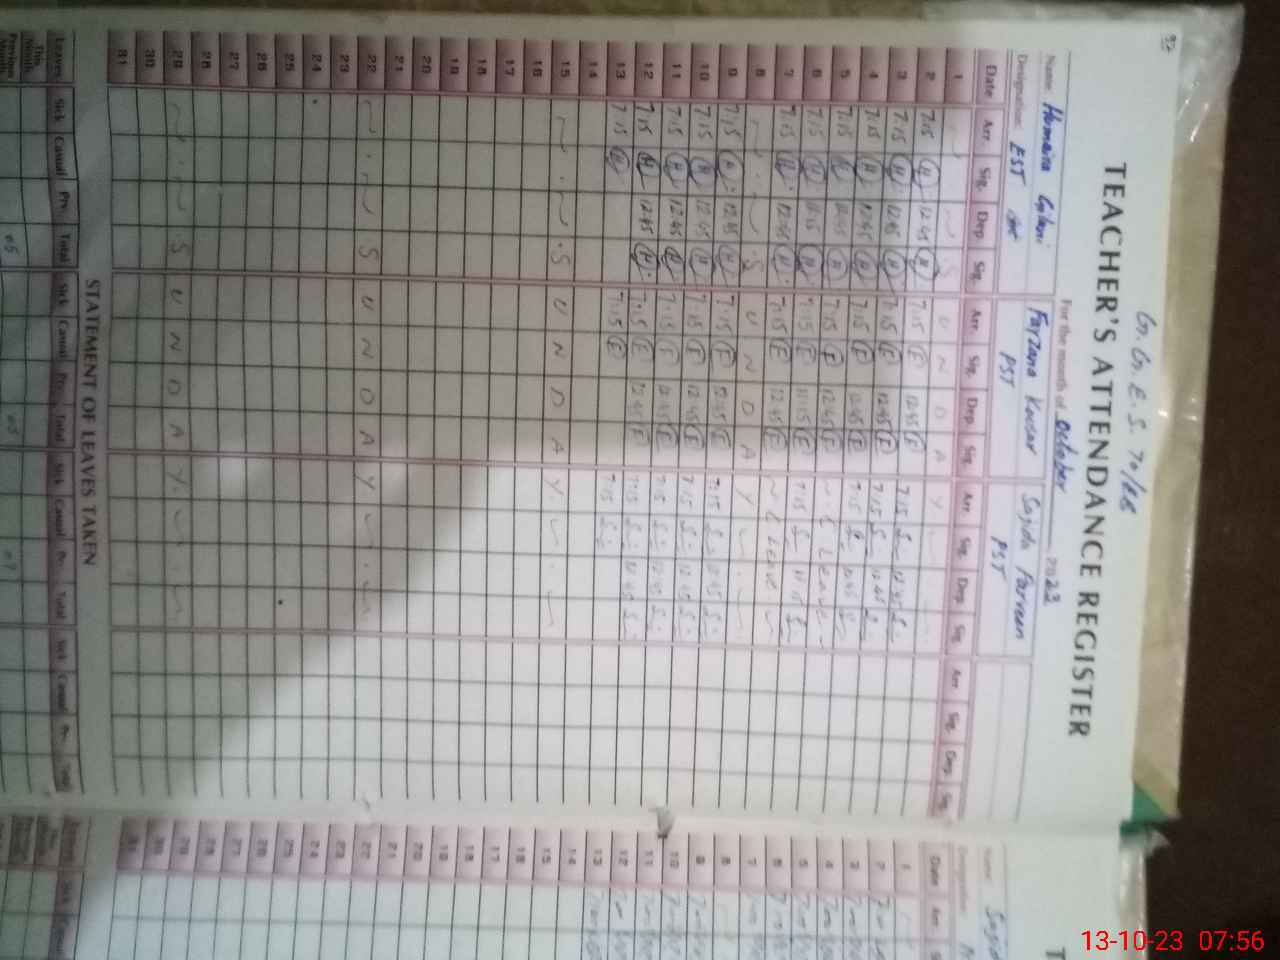 G. G. E. S. 70/EB
TEACHER'S ATTENDANCE REGISTER
For the month of October 2023
Name: Homaira Gilani Farzana Kousar Sajida Parveen
Designation: EST PST PST
Date Arr. Sig. Dep. Sig. Arr. Sig. Dep. Sig. Arr. Sig. Dep. Sig. Arr. Sig. Dep. Sig.
1 S U N D A Y
2 7.15 H 12.45 H 7.15 F 12.45 F 7.15 S 12.45 S
3 7.15 H 12.45 H 7.15 F 12.45 F 7.15 S 12.45 S
4 7.15 H 12.45 H 7.15 F 12.45 F 7.15 S 12.45 S
5 7.15 H 12.45 H 7.15 F 12.45 F Leave
6 7.15 H 7.15 F 11.15 F 7.15 S 11.15 S
7 7.15 H 12.45 H 7.15 F 12.45 F Leave
8 S U N D A Y
9 7.15 H 12.45 H 7.15 F 12.45 F 7.15 S 12.45 S
10 7.15 H 12.45 H 7.15 F 12.45 F 7.15 S 12.45 S
11 7.15 H 12.45 H 7.15 F 12.45 F 7.15 S 12.45 S
12 7.15 H 12.45 H 7.15 F 12.45 F 7.15 S 12.45 S
13 7.15 H 7.15 F 7.15 S
14
15 S U N D A Y
16
17
18
19
20
21
22 S U N D A Y
23
24
25
26
27
28
29 S U N D A Y
30
31
STATEMENT OF LEAVES TAKEN
Leaves Sick Casual Prv. Total Sick Casual Prv. Total Sick Casual Prv. Total Sick Casual Prv. Total
This Month
Previous Month 05 03 07
T
Name: Sajid
Designation:
Date Arr. S
1
2
3
4
5
6
7
8
9
10
11
12
13
14
15
16
17
18
19
20
21
22
23
24
25
26
27
28
29
30
31
Leaves Sick Casual
13-10-23 07:56